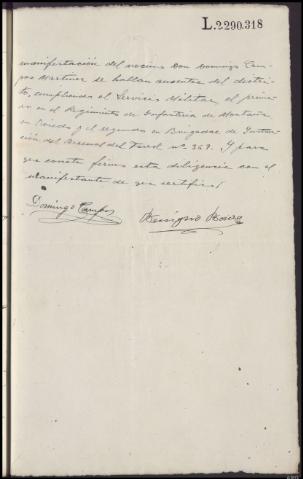 L.2290.318
manifestación del vecino Don Domingo Cam-
pos Martinez se hallan ausentes del distri-
to, cumpliendo el Servicio Militar, el prime-
ro en el Regimiento de Infantería de Montaña
en Oviedo y el segundo en Brigadas de
ción del Arsenal del Ferrol nº 369. Y para
que conste firmo esta diligencia con el
manifestante de que certifico!
Domingo Campos Benigno